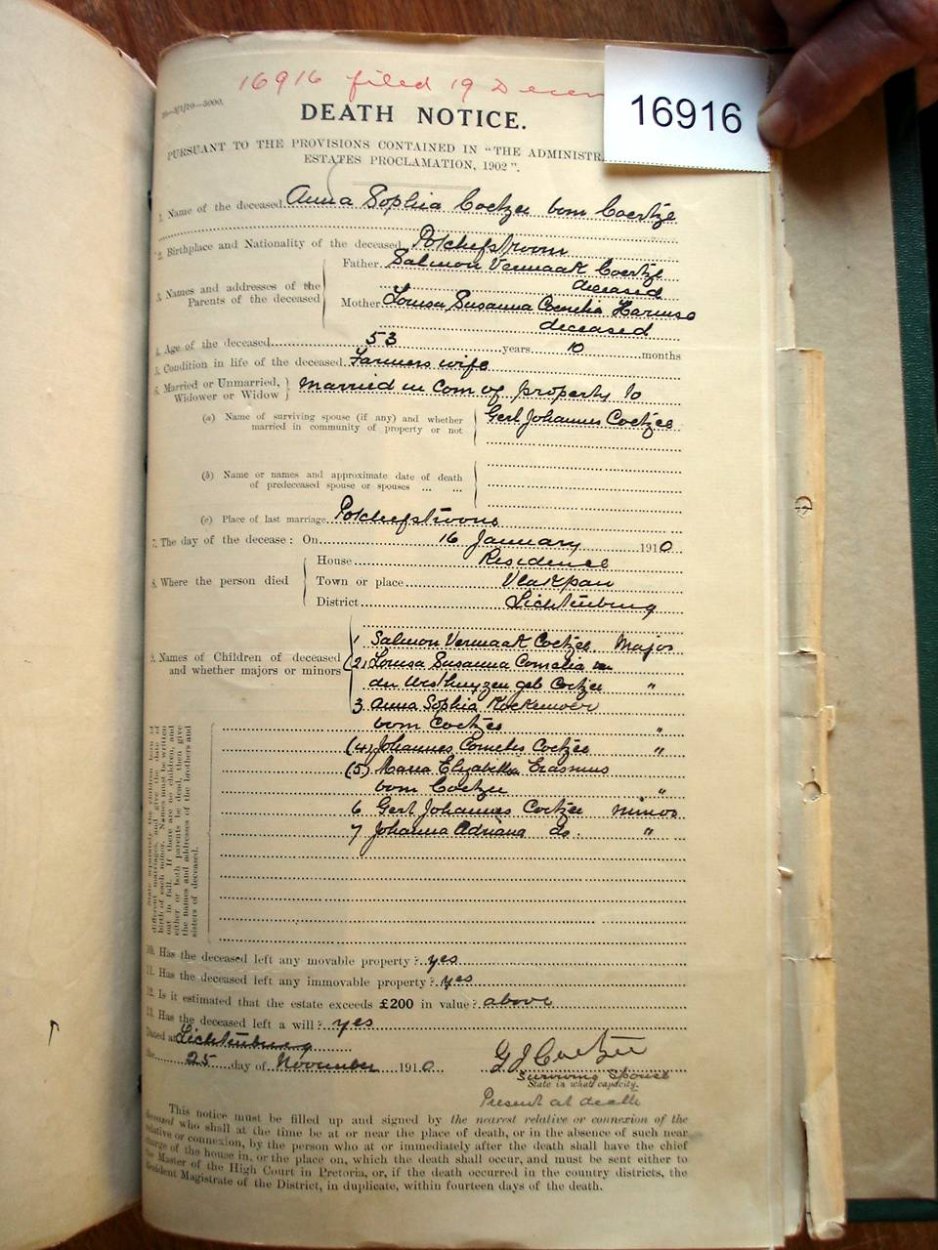 16916 filed 19 Decem
16916
DEATH NOTICE.
PURSUANT TO THE PROVISIONS CONTAINED IN "THE ADMINISTR
ESTATES PROCLAMATION, 1902".
1. Name of the deceased Anna Sophia Coetzee born Coertze
2. Birthplace and Nationality of the deceased Potchefstroom
3. Names and addresses of the Parents of the deceased
Father Salmon Vermaak Coertze
deceased
Mother Louisa Susanna Cornelia Harmse
deceased
4. Age of the deceased 53 years 10 months
5. Condition in life of the deceased Farmers wife
6. Married or Unmarried, Widower or Widow Married in Com of property to
(a) Name of surviving spouse (if any) and whether Gert Johannes Coetzee
married in community of property or not
(b) Name or names and approximate date of death
of predeceased spouse or spouses ... ...
(c) Place of last marriage Potchefstroom
7. The day of the decease: On 16 January 1910
House Residence
8. Where the person died Town or place Vlakpan
District Lichtenburg
1 Salmon Vermaak Coetzee Major
9. Names of Children of deceased (2) Louisa Susanna Cornelia van
and whether majors or minors der Westhuyzen geb Coetzee "
3 Anna Sophia Kockemoer
born Coetzee "
(4) Johannes Cornelis Coetzee "
(5) Maria Elizabetha Erasmus
born Coetzee "
6 Gert Johannes Coetzee minor
7 Johanna Adriana do. "
State separately the children born of
different marriages, and give the date of
birth of each minor. Names must be written
out in full. If there are no children, and
either or both parents be dead, then give
the names and addresses of the brothers and
sisters of deceased.
10. Has the deceased left any movable property? yes
11. Has the deceased left any immovable property? yes
12. Is it estimated that the estate exceeds £200 in value? above
13. Has the deceased left a will? yes
Dated at Lichtenburg
the 25 day of November 1910.
G J Coetzee
Surviving Spouse
State in what capacity.
Present at death
This notice must be filled up and signed by the nearest relative or connexion of the
deceased who shall at the time be at or near the place of death, or in the absence of such near
relative or connexion, by the person who at or immediately after the death shall have the chief
charge of the house in, or the place on, which the death shall occur, and must be sent either to
the Master of the High Court in Pretoria, or, if the death occurred in the country districts, the
Resident Magistrate of the District, in duplicate, within fourteen days of the death.